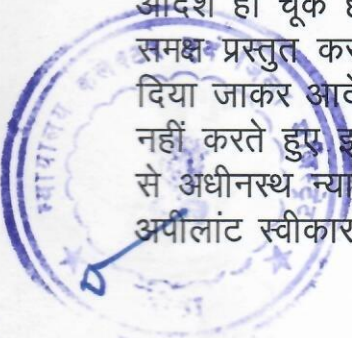 आदेश हो चूके
समक्ष प्रस्तुत कर
दिया जाकर आदे
नहीं करते हुए इ
से अधीनस्थ न्या
अपीलांट स्वीकार
न्यायालय कलक्टर